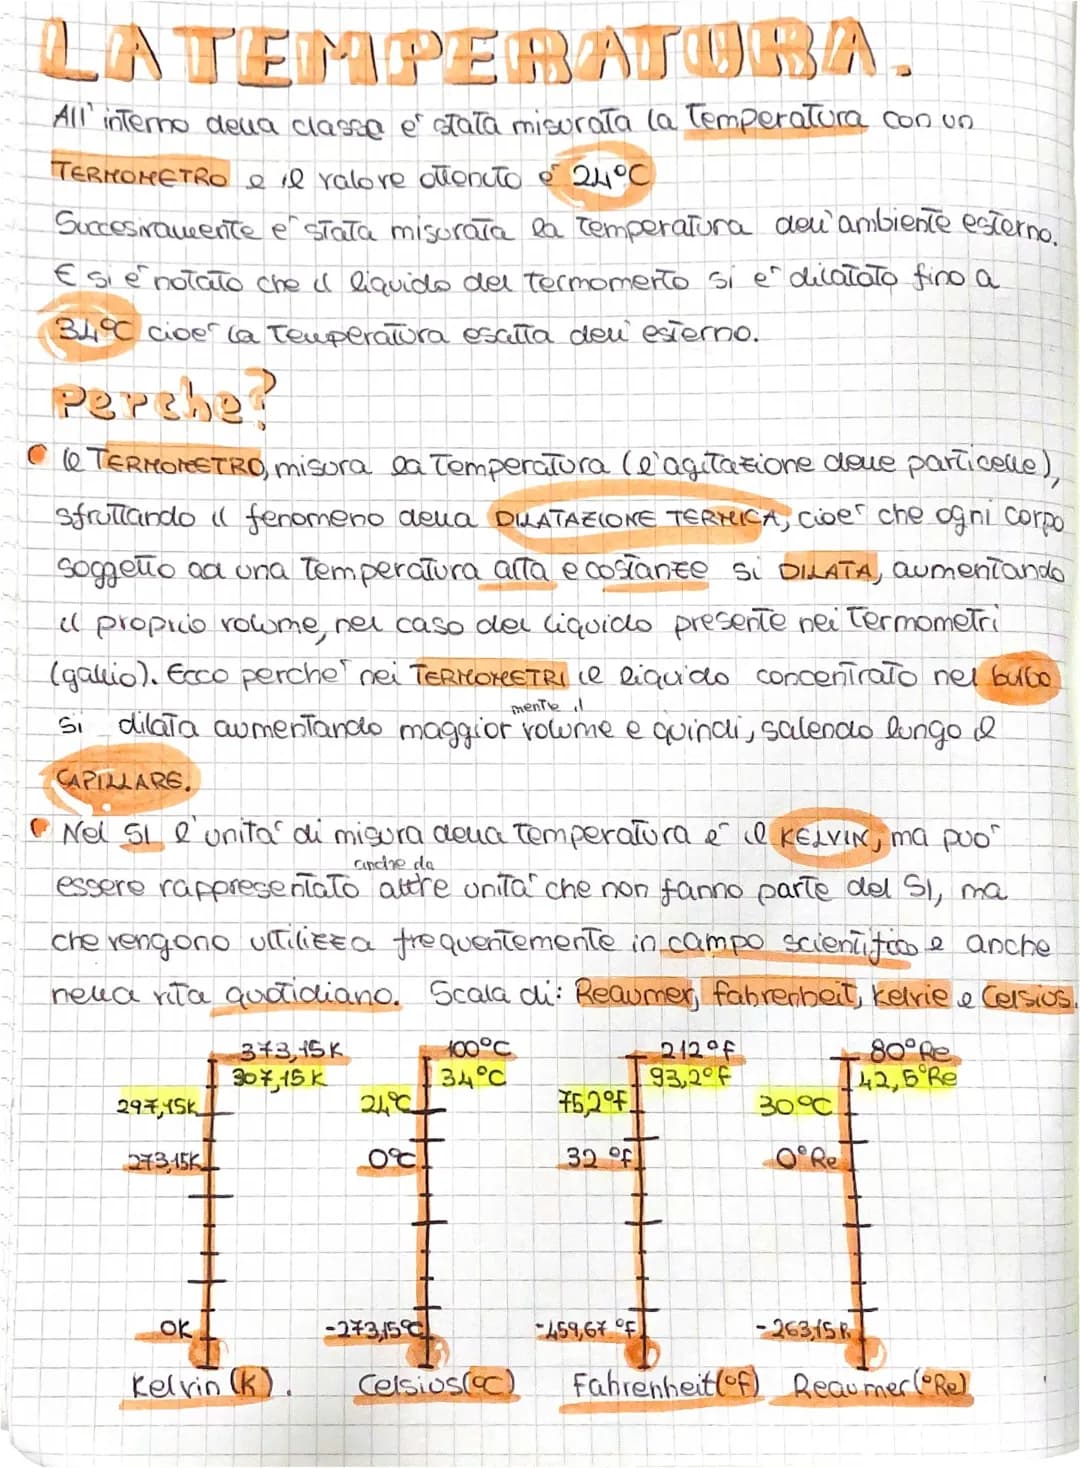 LA TEMPERATURA.
All'interno della classe e' stata misurata la Temperatura con un
TERMOMETRO e il valore ottenuto e' 24°C
Succesivamente e' stata misurata la temperatura dell'ambiente esterno.
E si e' notato che il liquido del termomerto si e' dilatato fino a
34°C cioe' la Temperatura esatta dell'esterno.
Perche?
il TERMOMETRO, misura la Temperatura (l'agitazione delle particelle),
sfruttando il fenomeno della DILATAZIONE TERMICA, cioe' che ogni corpo
soggetto ad una Temperatura alta e costante si DILATA, aumentando
il proprio volume, nel caso del liquido presente nei Termometri
(gallio). Ecco perche' nei TERMOMETRI il liquido concentrato nel bulbo
mente il
si dilata aumentando maggior volume e quindi, salendo lungo il
CAPILLARE.
Nel SI l'unita' di misura della Temperatura e' il KELVIN, ma puo'
anche da
essere rappresentato altre unita' che non fanno parte del SI, ma
che vengono uttilizza frequentemente in campo scientifico e anche
nella vita quotidiano. Scala di: Reaumer, fahrenheit, kelvie e Celsius.
373,15K 100°C 212°F 80°Re
307,15K 34°C 93,2°F 42,5°Re
297,15K 24°C 75,2°F 30°C
273,15K 0°C 32°F 0°Re
0K -273,15°C -459,67°F -263,15R
Kelvin (K). Celsios(°C) Fahrenheit(°F) Reaumer(°Re)